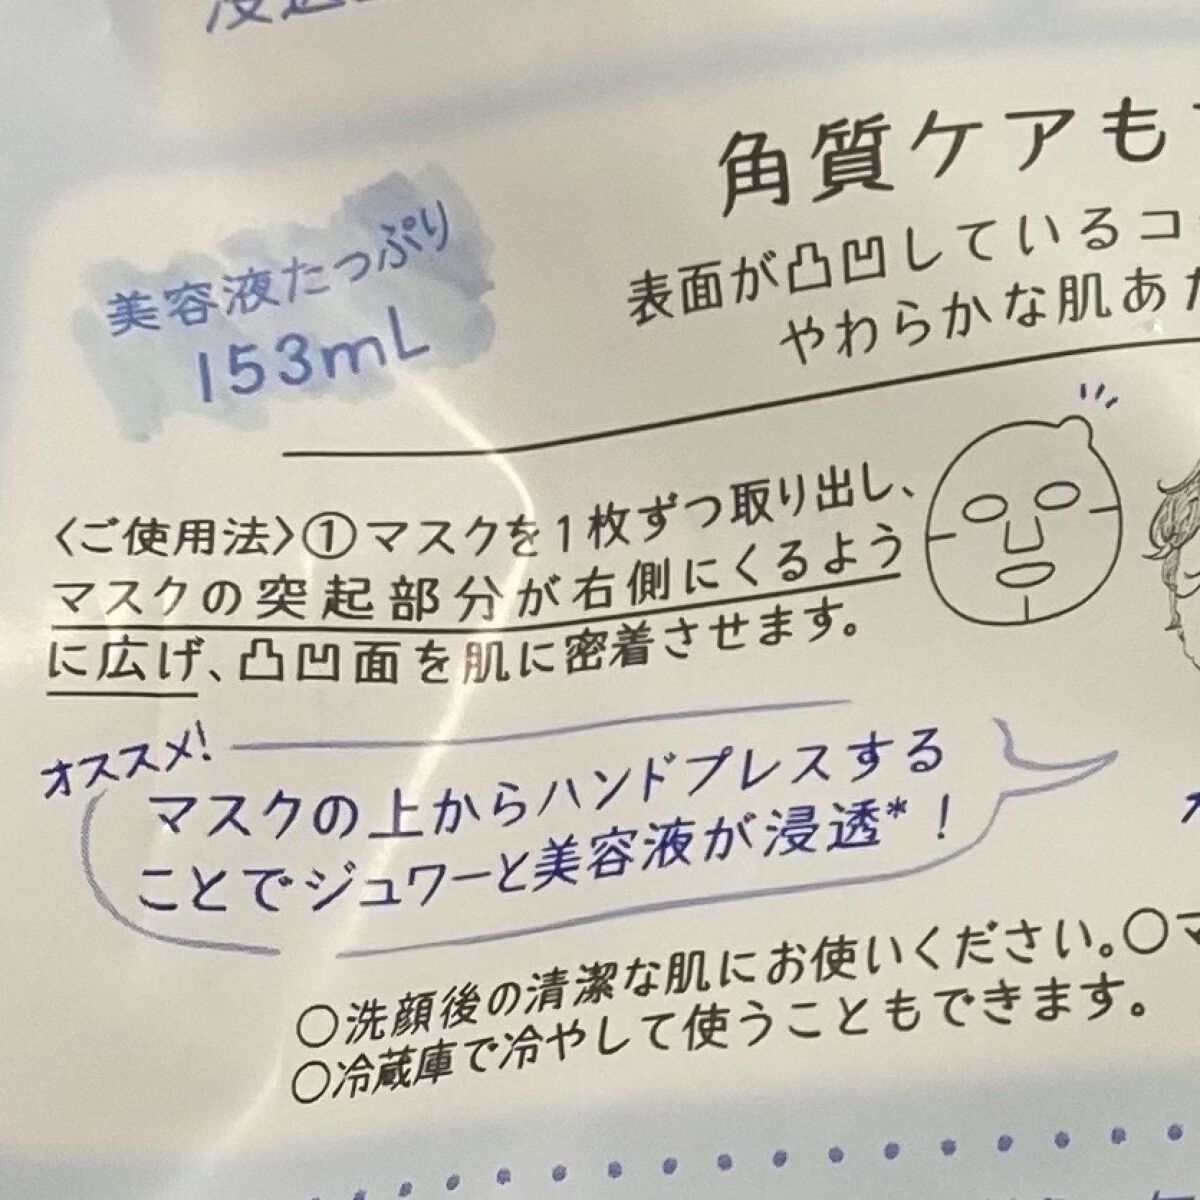 角質ケアも
表面が凸凹している
やわらかな肌あ
美容液たっぷり
153mL
〈ご使用法〉①マスクを1枚ずつ取り出し、
マスクの突起部分が右側にくるよう
に広げ、凸凹面を肌に密着させます。
オススメ!
マスクの上からハンドプレスする
ことでジュワーと美容液が浸透*!
○洗顔後の清潔な肌にお使いください。○マ
○冷蔵庫で冷やして使うこともできます。